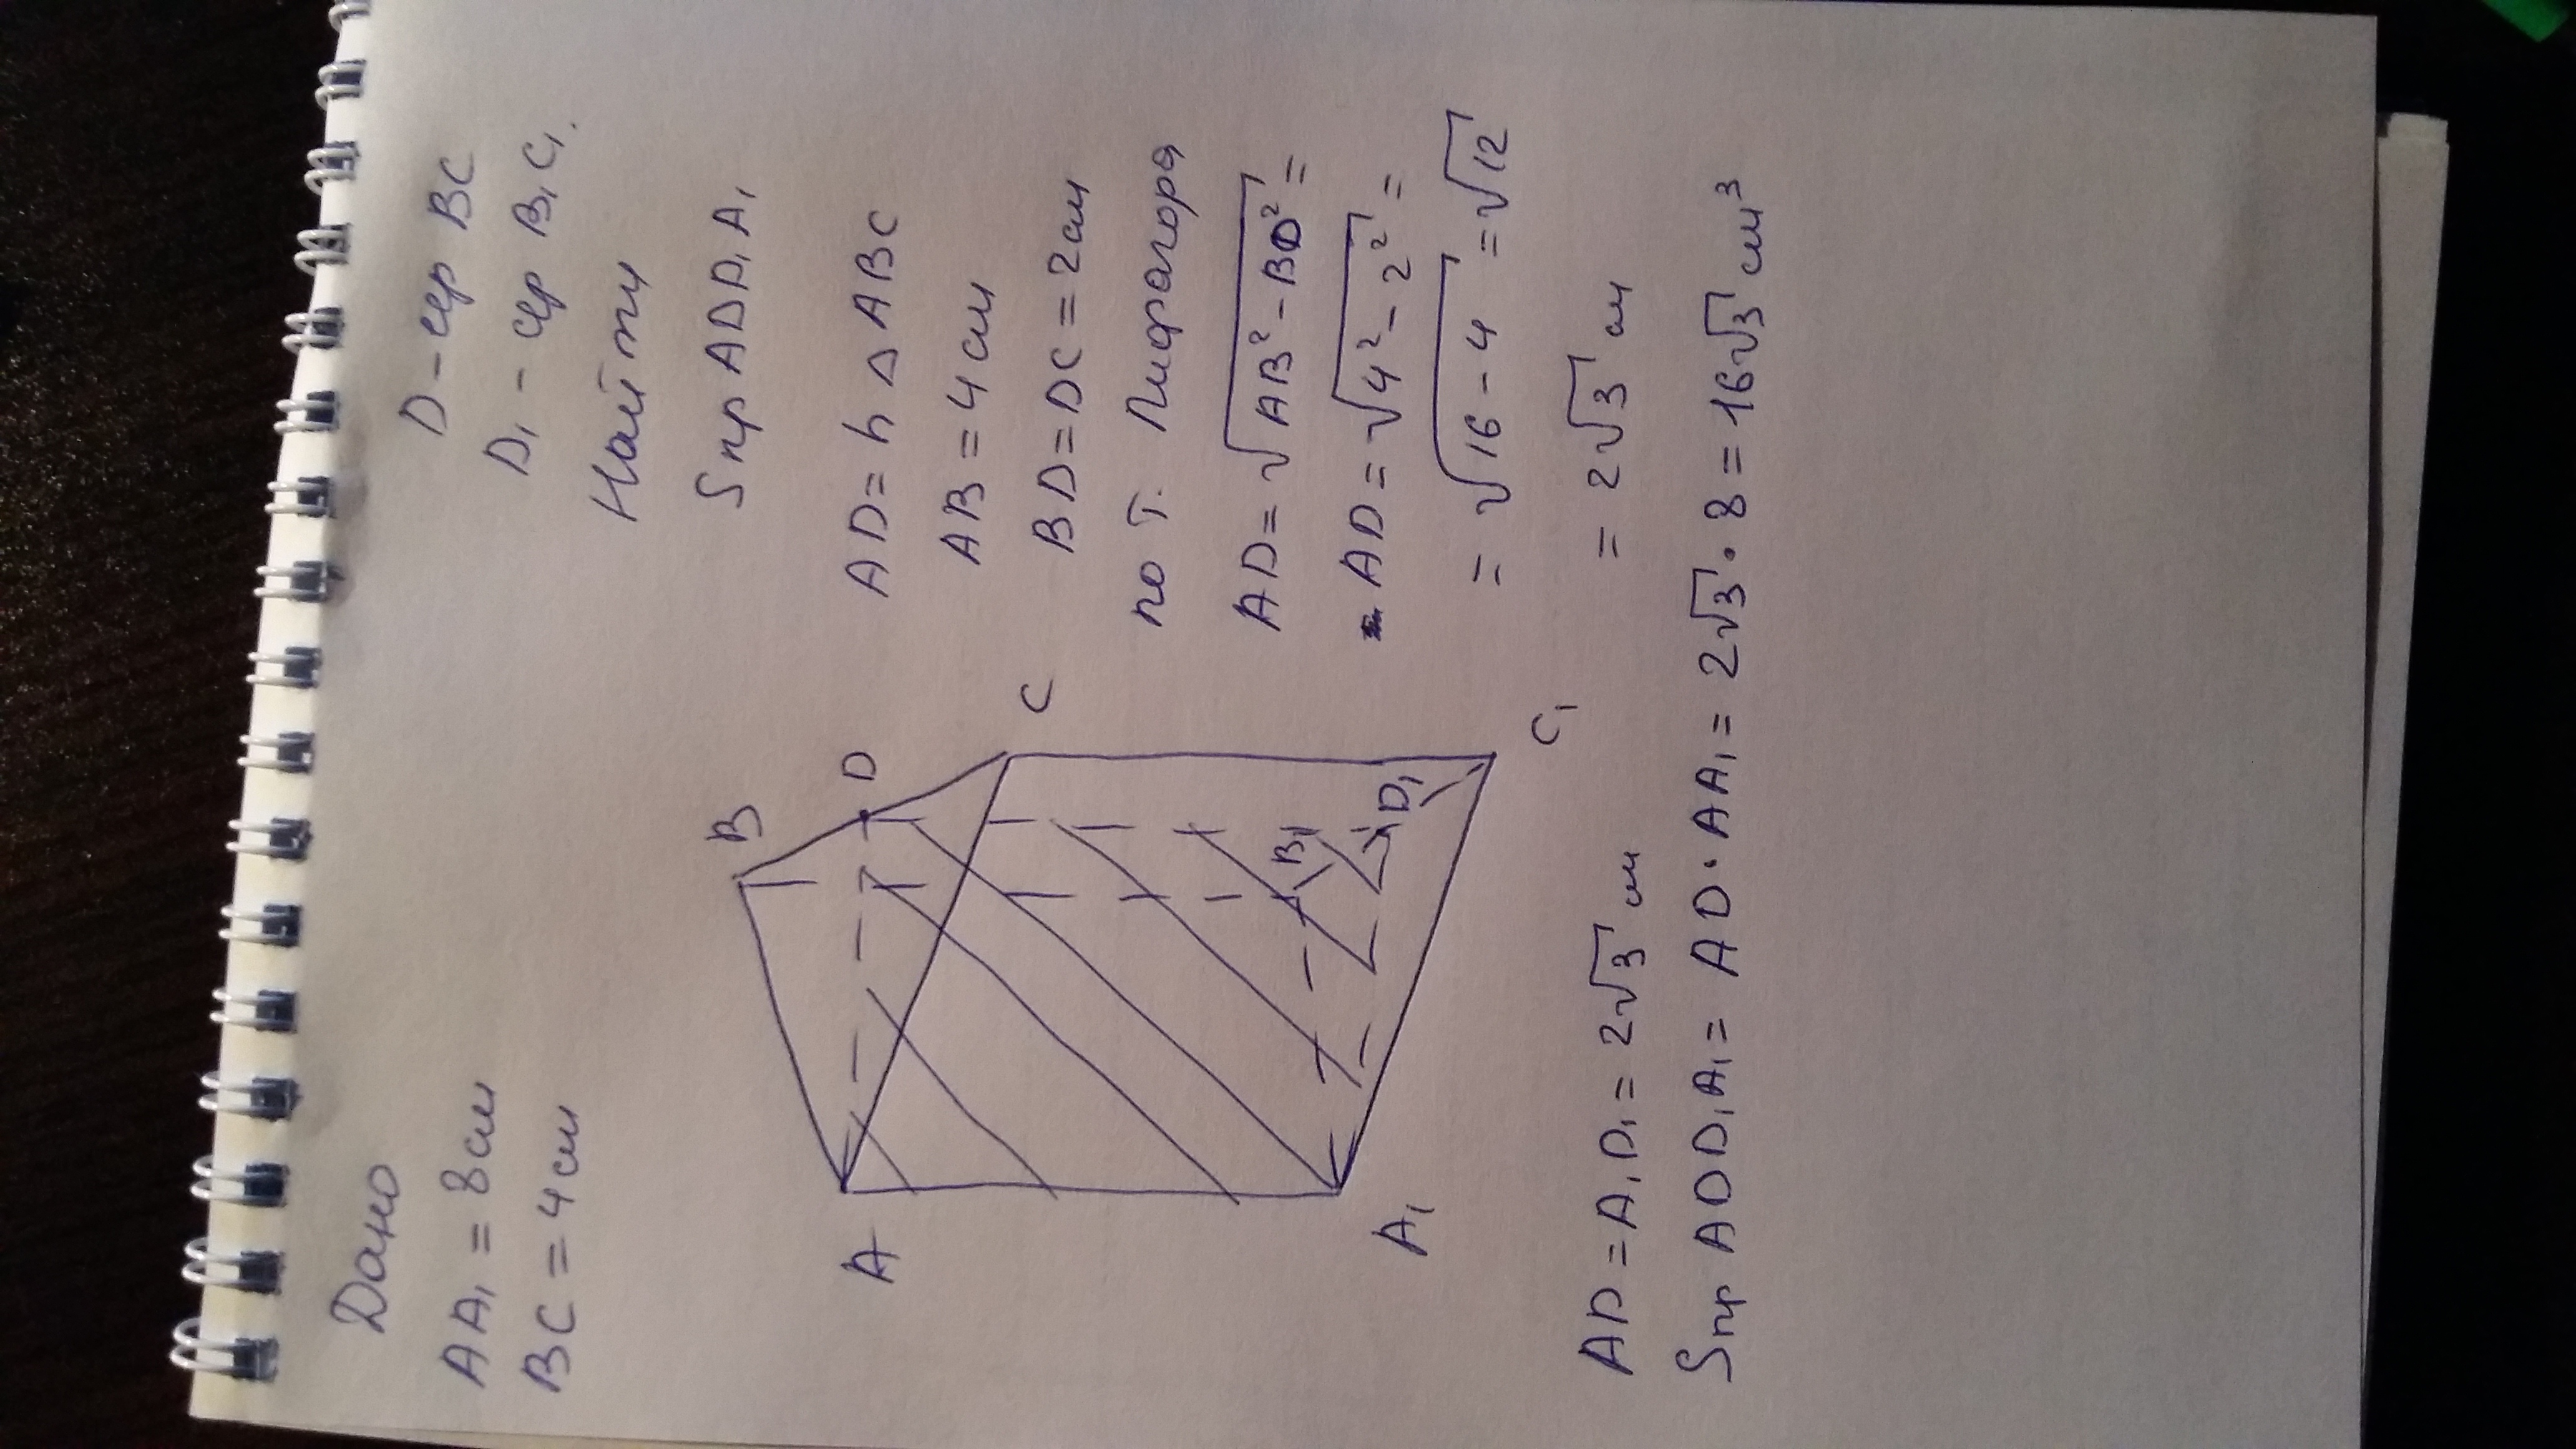 Дано
AA₁ = 8 см
BC = 4 см
D - сер BC
D₁ - сер B₁C₁.
Найти
Sпр ADD₁A₁
B
D
C
A
B₁
D₁
C₁
A₁
AD = h △ ABC
AB = 4 см
BD = DC = 2 см
по т. Пифагора
AD = √AB² - BD² =
AD = √4² - 2² =
= √16 - 4 = √12
= 2√3 см
AD = A₁D₁ = 2√3 см
Sпр ADD₁A₁ = AD · AA₁ = 2√3 · 8 = 16√3 см³